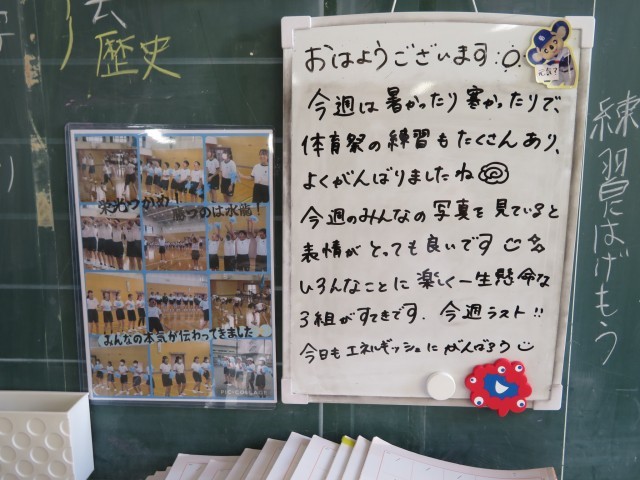 歴史
おはようございます
今週は暑かったり寒かったりで、
体育祭の練習もたくさんあり、
よくがんばりましたね
今週のみんなの写真を見ていると
表情がとっても良いです
いろんなことに楽しく一生懸命な
3組がすてきです. 今週ラスト!!
今日もエネルギッシュにがんばろう
栄光つかめ!
勝つのは水龍!
みんなの本気が伝わってきました
練習にはげもう